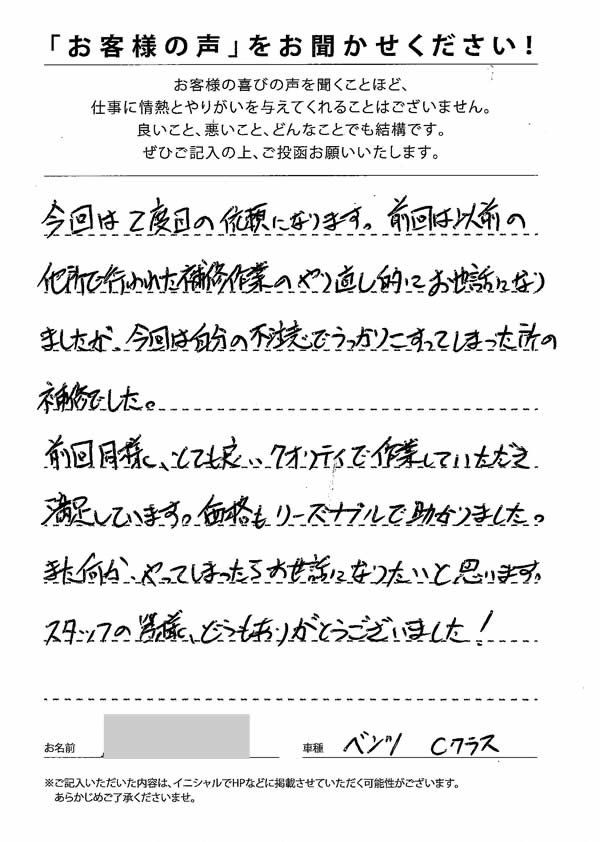 「お客様の声」をお聞かせください！
お客様の喜びの声を聞くことほど、
仕事に情熱とやりがいを与えてくれることはございません。
良いこと、悪いこと、どんなことでも結構です。
ぜひご記入の上、ご投函お願いいたします。
今回は2度目の依頼になります。前回は以前の
他所で行われた補修作業のやり直し的にお世話になり
ましたが、今回は自分の不注意でうっかりこすってしまった所の
補修でした。
前回同様に、とても良いクオリティで作業していただき
満足しています。価格もリーズナブルで助かりました。
また何か、やってしまったらお世話になりたいと思います。
スタッフの皆様、どうもありがとうございました！
お名前
車種 ベンツ Cクラス
※ご記入いただいた内容は、イニシャルでHPなどに掲載させていただく可能性がございます。
あらかじめご了承くださいませ。